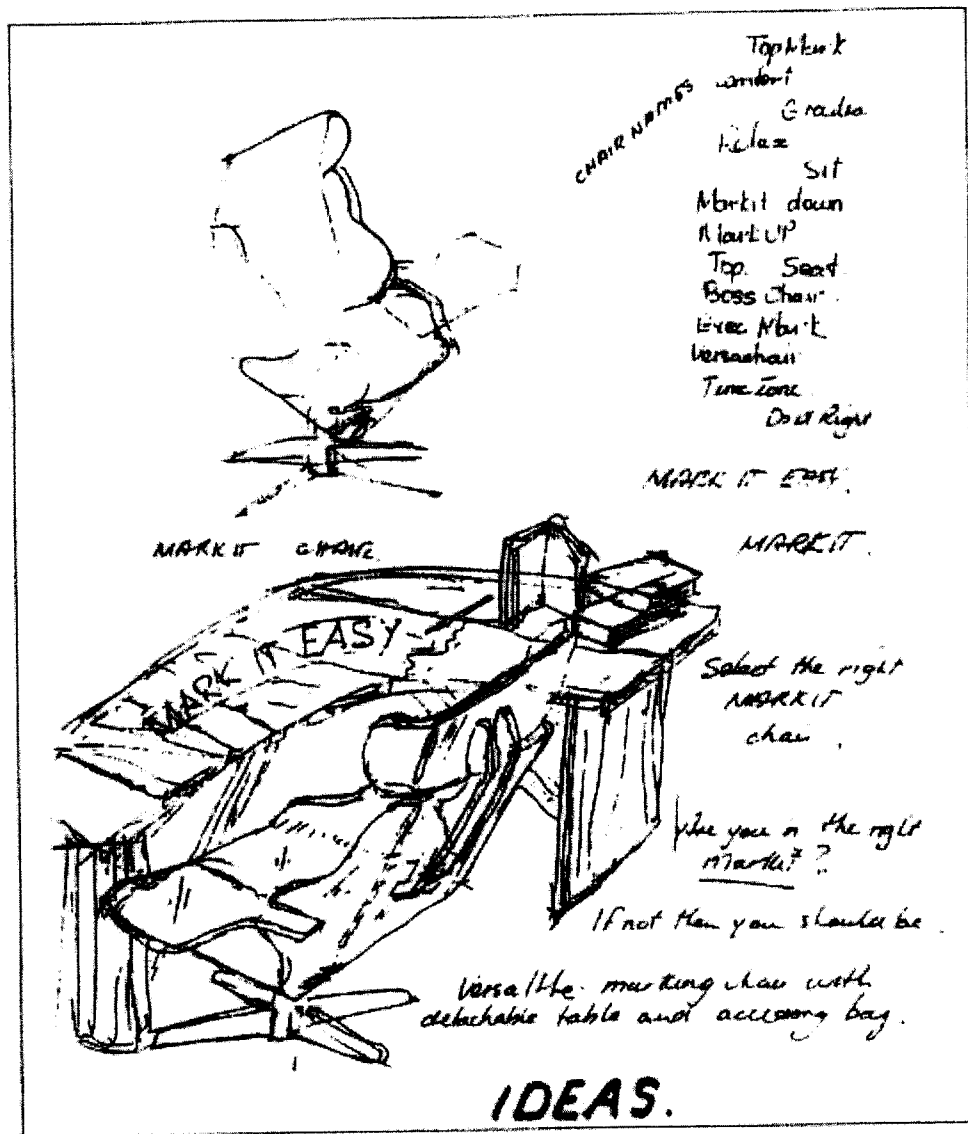 CHAIR NAMES
TopMark
Comfort
Grada
Relax
Sit
Markit down
Mark UP
Top Seat
Boss Chair.
Exec Mark
Versachair
Time Zone
Do it Right
MARK IT EASY.
MARK IT CHAIR.
MARKIT.
MARK IT EASY
Select the right
MARKIT
chair.
Are you in the right
market?
If not then you should be.
Versatile marking chair with
detachable table and accessory bag.
IDEAS.